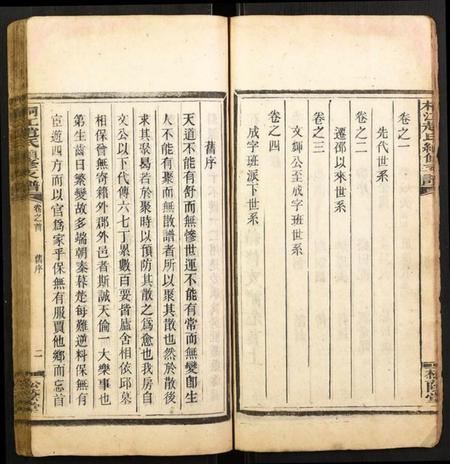 卷之一
先代世系
卷之二
遷邵以來世系
卷之三
文輝公至成字班世系
卷之四
成字班派下世系
舊序
天道不能有舒而無慘世運不能有常而無變卽生
人不能有聚而無散譜者所以聚其散也然於散後
求其聚曷若於聚時以預防其散之爲愈也我房自
文公以下代傳六七丁累數百要皆廬舍相依邱墓
相保曾無寄籍外郡外邑者斯誠天倫一大樂事也
第生齒日繁變故多端朝秦暮楚每難逆料保無有
宦遊四方而以官爲家乎保無有服賈他鄉而忘首
江趙氏續修支譜
卷之首
舊序
二